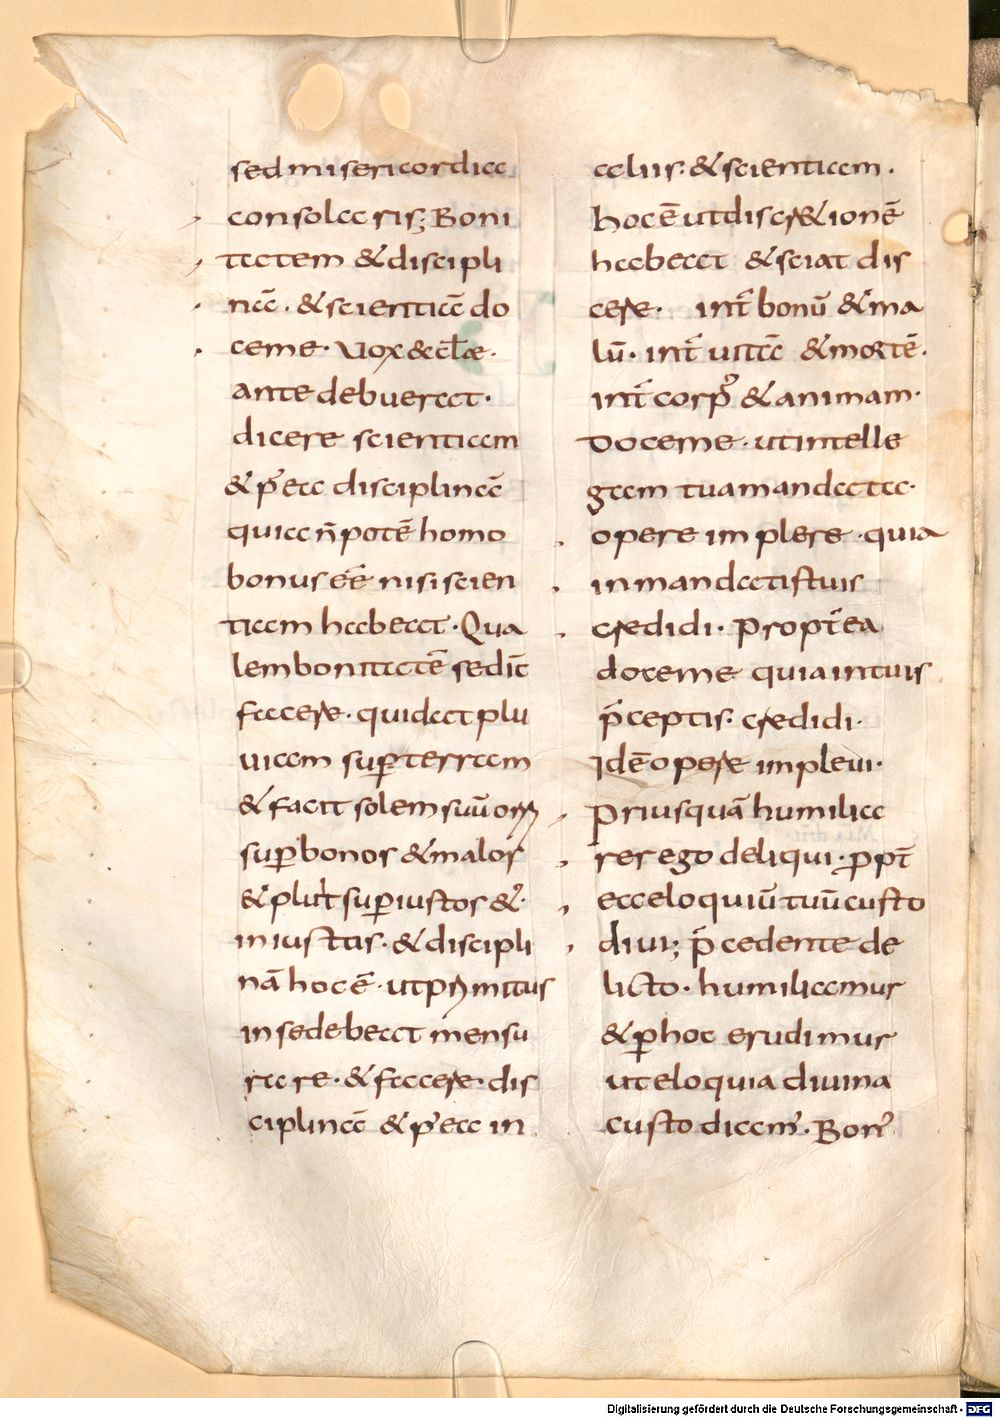 sed misericordia
consolaris; Boni
tatem & discipli
nā. & scientiā do
ceme. Vox ęctłæ.
ante debuerat.
dicere scientiam
& p̄ ea disciplinā
quia n̄ potē homo
bonus eē nisi scien
tiam habeat. Qua
lem bonitatē sedīt
facere. quidat plu
uiam sup terram
& facit solem suū orr̄
sup bonos & malos
& pluit sup iustos &ʼ
iniustus. & discipli
nā hoc ē. ut prīmitus
in se debeat mensu
rare. & facere. dis
ciplinā & p̄ ea in
aliis. & scientiam.
hoc ē ut discr&ionē
habeat & sciat dis
cere. int̄ bonū & ma
lū. int̄ uitā & mortē.
int̄ corpʼ & animam.
Doceme. ut intelle
gam tua mandata.
opere implere. quia
in mandatis tuis
credidi. Propt̄ea
doceme quia in tuis
p̄ceptis. credidi.
Idē opere impleui.
Priusquā humilia
rer ego deliqui. ꝓpt̄
ea eloquiū tuū custo
diui; p̄cedente de
licto. humiliamur
& p hoc erudimur
ut eloquia diuina
custodiamʼ. Bonʼ
Digitalisierung gefördert durch die Deutsche Forschungsgemeinschaft - DFG